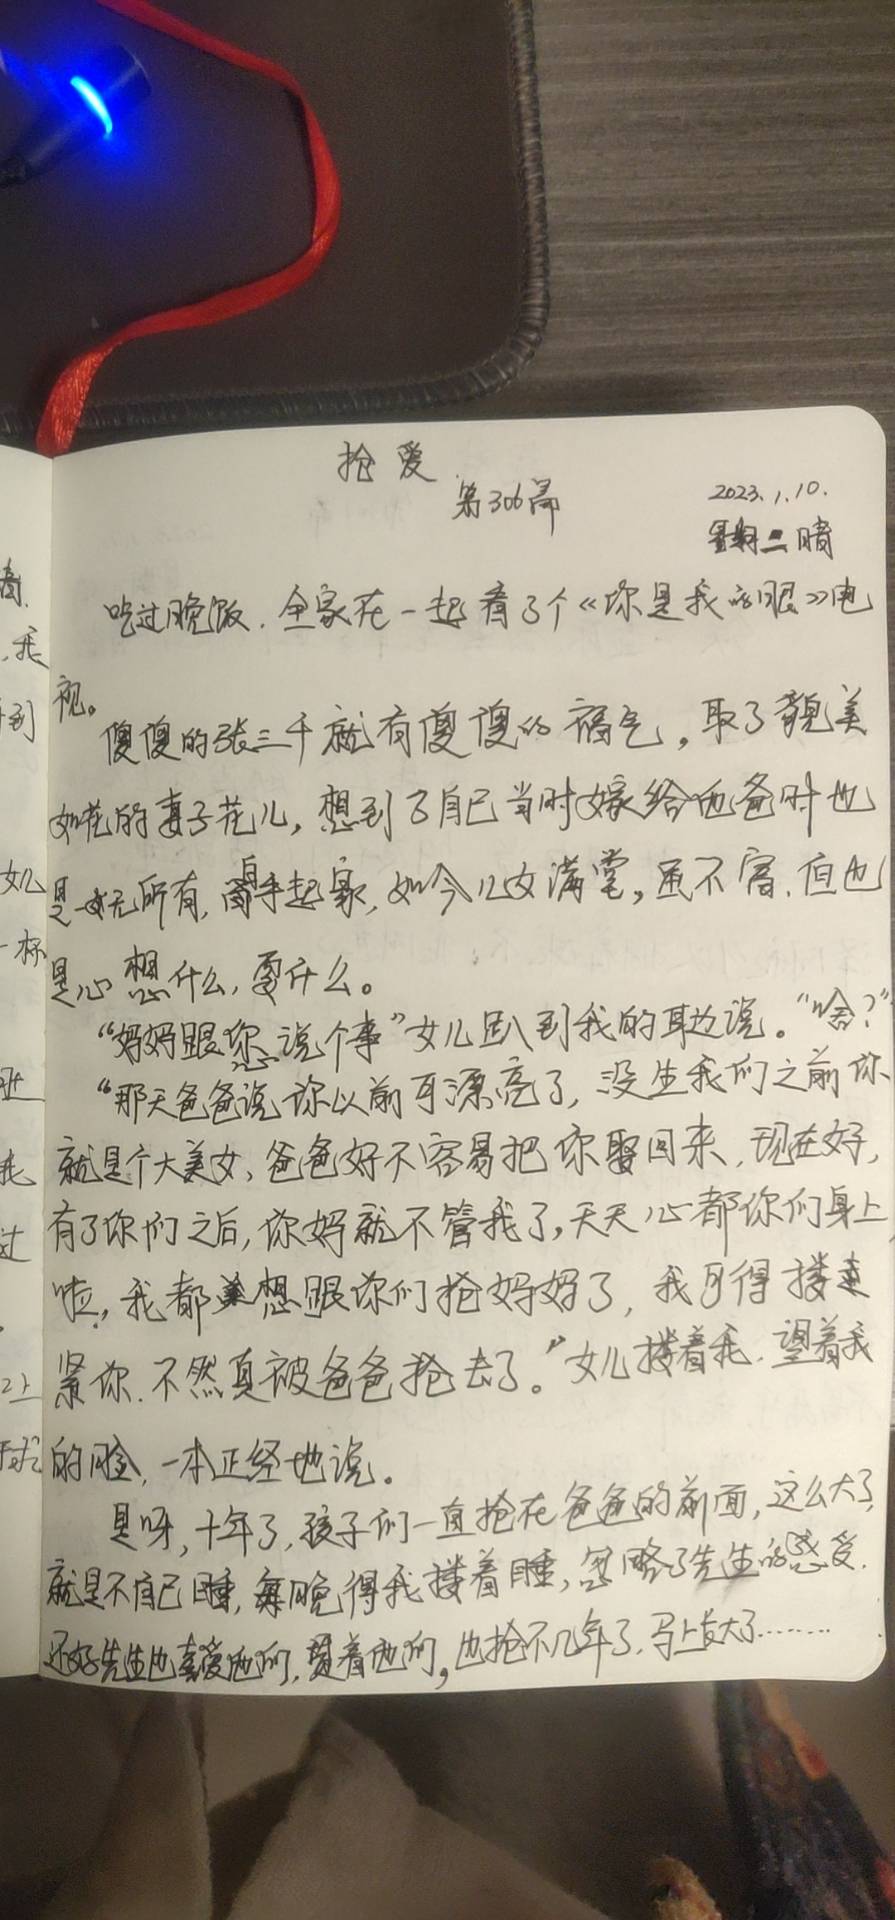 抢爱
第306篇
2023.1.10.
星期二 晴
吃过晚饭.全家在一起看了个《你是我的眼》电
视。
傻傻的张三千就有傻傻的福气,取了貌美
如花的妻子花儿,想到了自己当时嫁给他爸时也
是一无所有,白手起家,如今儿女满堂,虽不富.但也
是心想什么,要什么。
“妈妈跟您说个事”女儿趴到我的耳边说。“啥?”
“那天爸爸说你以前可漂亮了,没生我们之前你
就是个大美女,爸爸好不容易把你娶回来,现在好,
有了你们之后,你妈就不管我了,天天心都你们身上
啦,我都想跟你们抢妈妈了,我可得搂
紧你.不然真被爸爸抢去了。”女儿搂着我.望着我
的脸,一本正经地说。
是呀,十年了,孩子们一直抢在爸爸的前面,这么大了,
就是不自己睡,每晚得我搂着睡,忽略了先生的感受.
还好先生也喜爱他们,望着他们,也抢不几年了.马上长大了……
着.
,我
到
女儿
一杯
班
我
过
以上
球